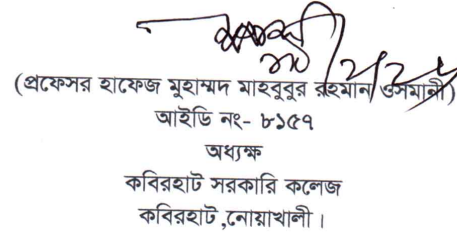 (প্রফেসর হাফেজ মুহাম্মদ মাহবুবুর রহমান ওসমানী)
আইডি নং- ৮১৫৭
অধ্যক্ষ
কবিরহাট সরকারি কলেজ
কবিরহাট ,নোয়াখালী ।